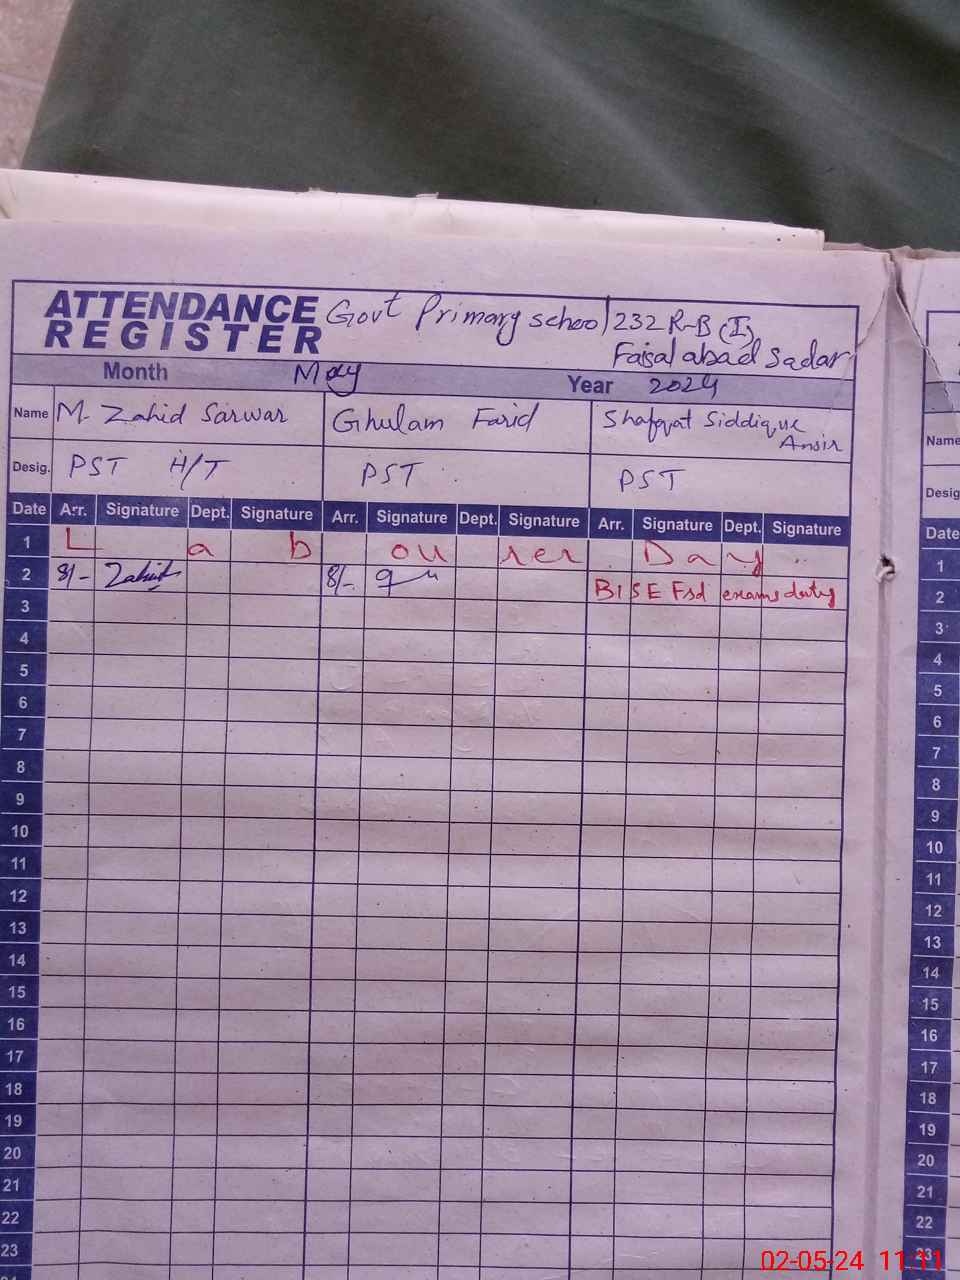 ATTENDANCE REGISTER Govt Primary school 232 R-B (I)
Faisalabad Sadar
Month May Year 2024
Name M. Zahid Sarwar Ghulam Farid Shafqat Siddique Ansir
Name
Desig. PST H/T PST PST
Desig.
Date Arr. Signature Dept. Signature Arr. Signature Dept. Signature Arr. Signature Dept. Signature
Date
1 Labourer Day
1
2 8/- Zahid 8/- BISE Fsd exams duty
2
3
3
4
4
5
5
6
6
7
7
8
8
9
9
10
10
11
11
12
12
13
13
14
14
15
15
16
16
17
17
18
18
19
19
20
20
21
21
22
22
23
23
02-05-24 11:11